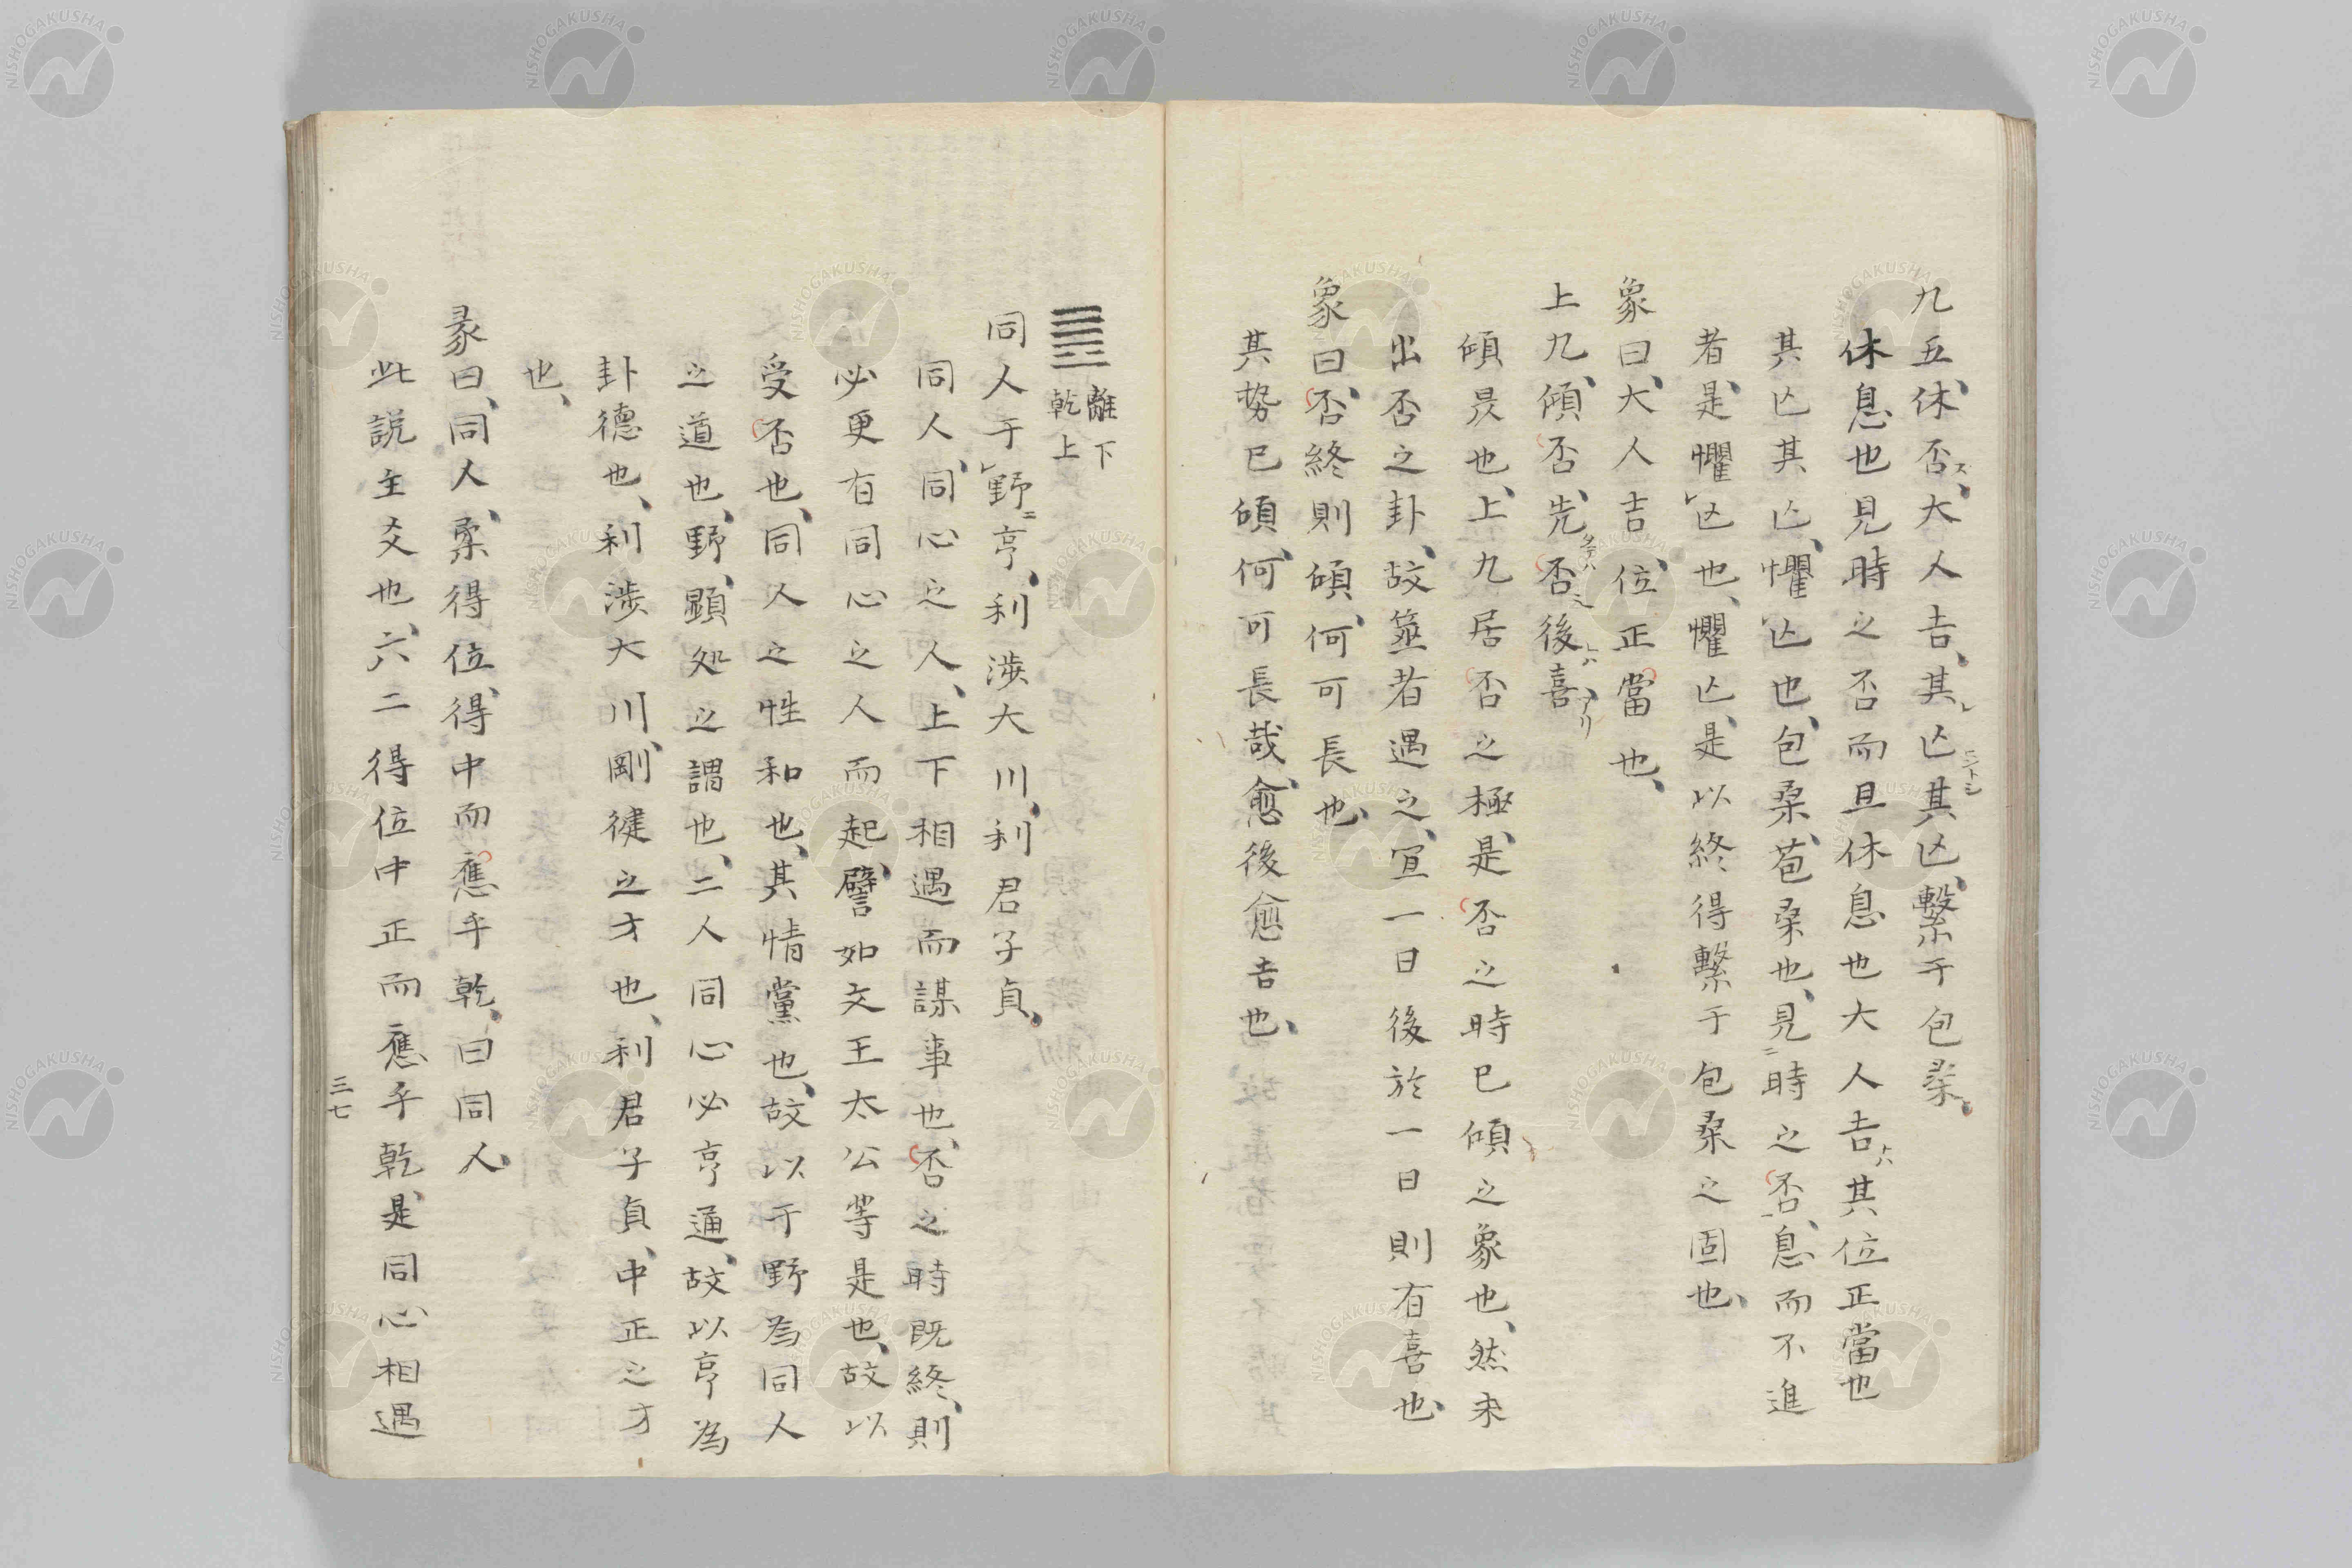 九五、休否、大人吉、其亾其亾、繋于包桒、
休息也見時之否而且休息也大人吉其位正當也
其亾其亾、懼亾也、包桒、苞桒也、見時之否、息而不進
者、是懼亾也、懼亾、是以終得繋于包桒之固也、
象曰、大人吉、位正當也、
上九、傾否、先否後喜、
傾昃也、上九居否之極、是否之時已傾之象也、然未
出否之卦、故筮者遇之、宜一日後於一日則有喜也、
象曰、否終則傾、何可長也、
其勢已傾、何可長哉、愈後愈吉也、
離下
乾上
同人于野、亨、利涉大川、利君子貞、
同人、同心之人、上下相遇而謀事也、否之時既終、則
必更有同心之人而起、譬如文王太公等是也、故以
受否也、同人之性和也、其情黨也、故以于野為同人
之道也、野、顕処之謂也、二人同心必亨通、故以亨為
卦德也、利涉大川、剛健之才也、利君子貞、中正之才
也、
彖曰、同人、柔得位、得中而應乎乾、曰同人、
此說主爻也、六二得位中正而應乎乾、是同心相遇
三七
NISHOGAKUSHA